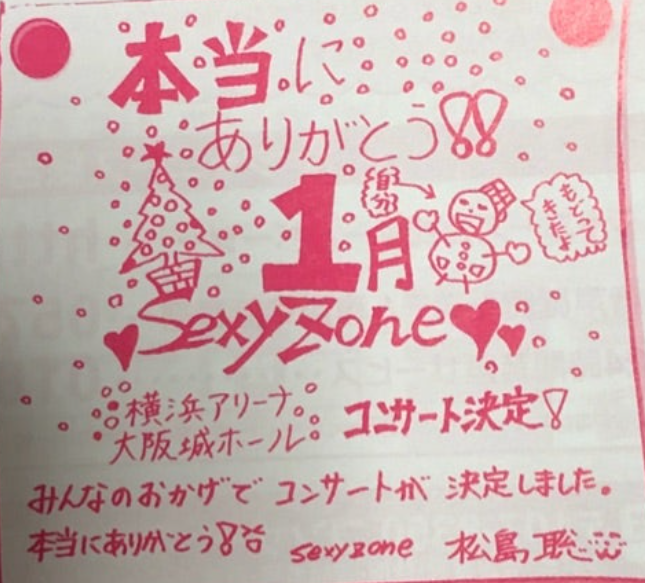 本当に
ありがとう!!
1月
自分
もどって
きたよ
Sexy Zone
横浜アリーナ
大阪城ホール
コンサート決定!
みんなのおかげで コンサートが 決定しました。
本当にありがとう!!
sexyzone 松島聡